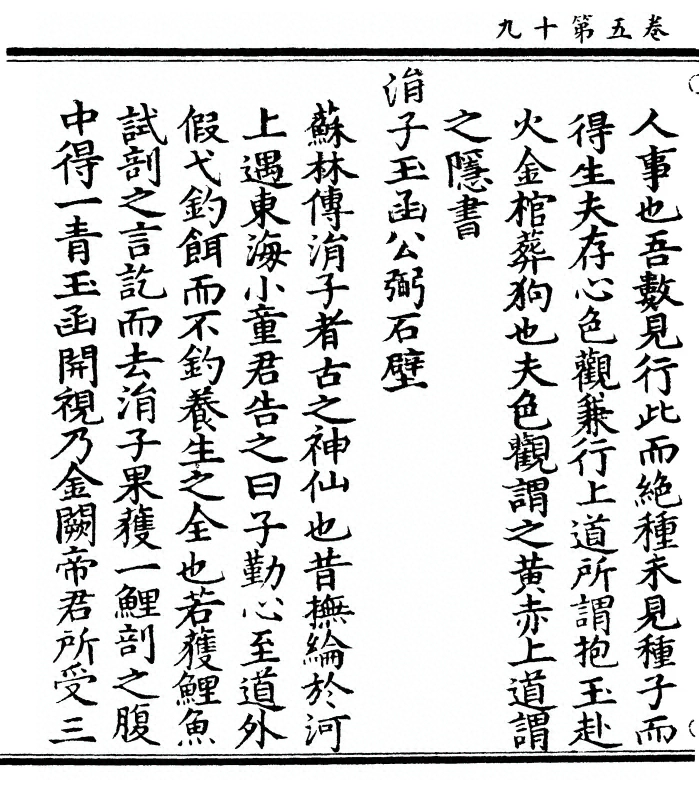 卷五第十九
人事也吾數見行此而絕種未見種子而
得生夫存心色觀兼行上道所謂抱玉赴
火金棺葬狗也夫色觀謂之黃赤上道謂
之隱書
涓子玉函公弼石壁
蘇林傳涓子者古之神仙也昔撫綸於河
上遇東海小童君告之曰子勤心至道外
假弋釣餌而不釣養生之全也若獲鯉魚
試剖之言訖而去涓子果獲一鯉剖之腹
中得一青玉函開視乃金闕帝君所受三